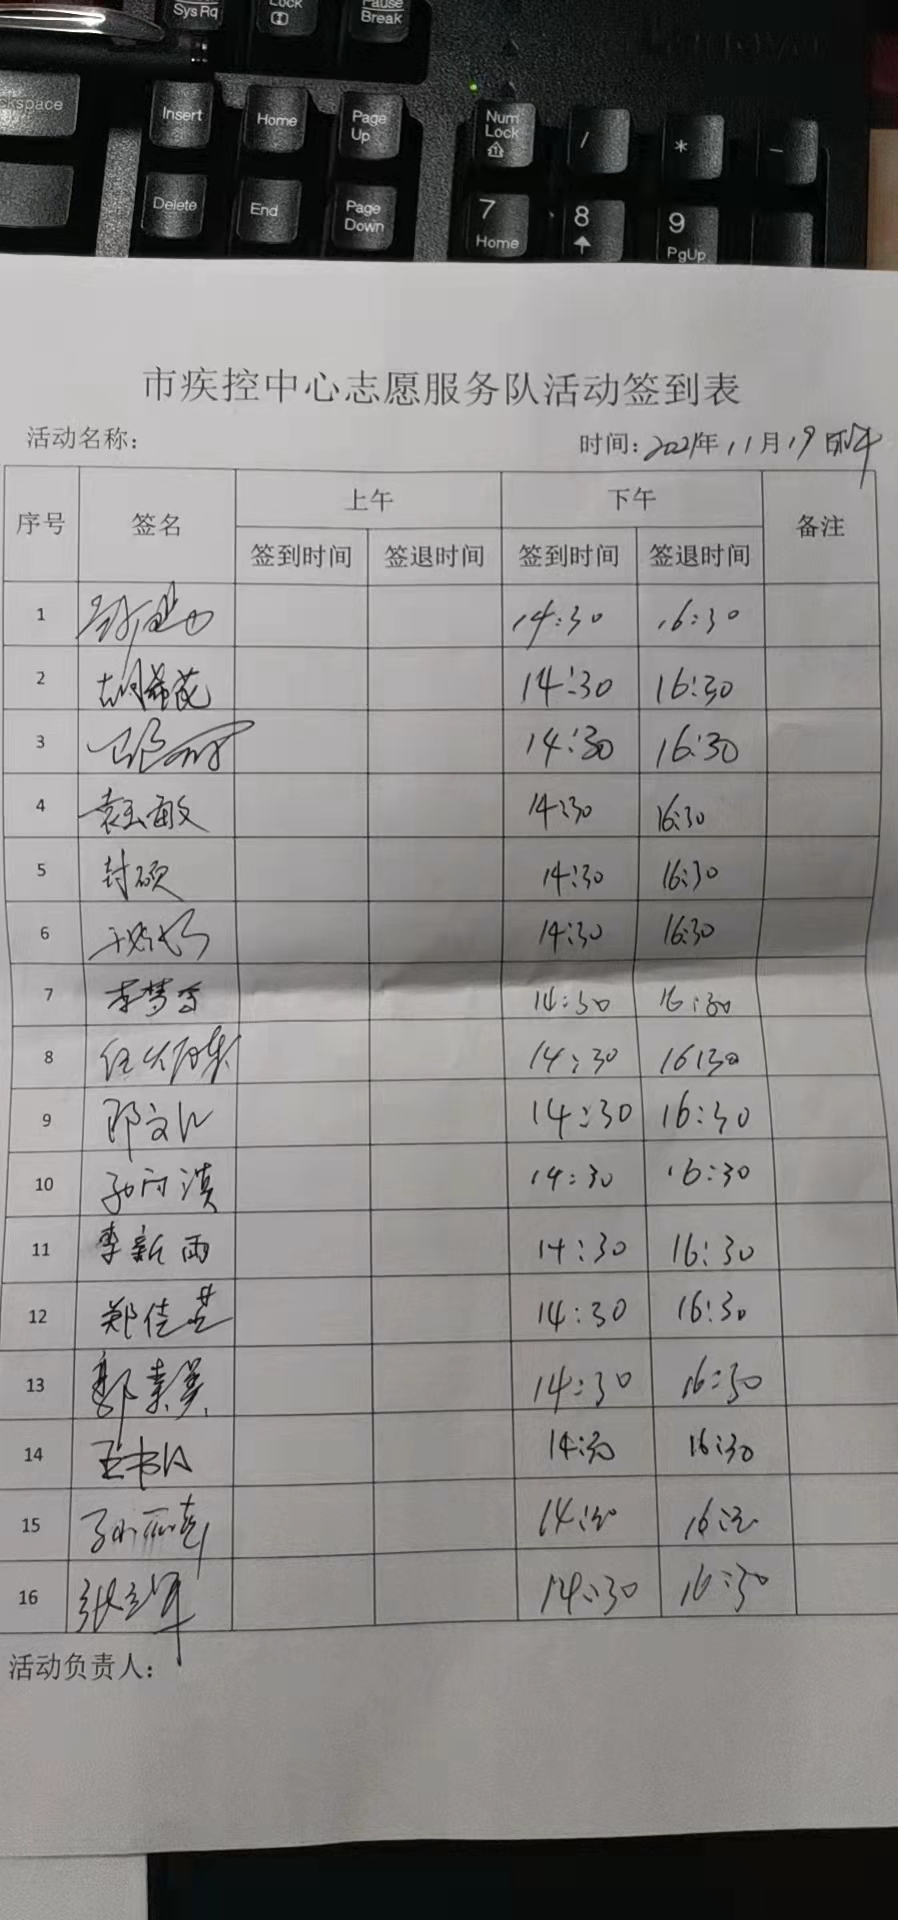 SysRq
Lock
Pause
Break
ckspace
Insert
Home
Page
Up
Num
Lock
/
*
-
Delete
End
Page
Down
7
Home
8
9
PgUp
市疾控中心志愿服务队活动签到表
活动名称:
时间: 2021年 11月 19日
序号 签名 上午 下午 备注
签到时间 签退时间 签到时间 签退时间
1 14:30 16:30
2 胡希花 14:30 16:30
3 14:30 16:30
4 袁玉敏 14:30 16:30
5 封硕 14:30 16:30
6 14:30 16:30
7 李梦 14:30 16:30
8 14:30 16:30
9 邵文 14:30 16:30
10 14:30 16:30
11 李新雨 14:30 16:30
12 郑佳 14:30 16:30
13 郭素英 14:30 16:30
14 14:30 16:30
15 14:30 16:30
16 14:30 16:30
活动负责人: